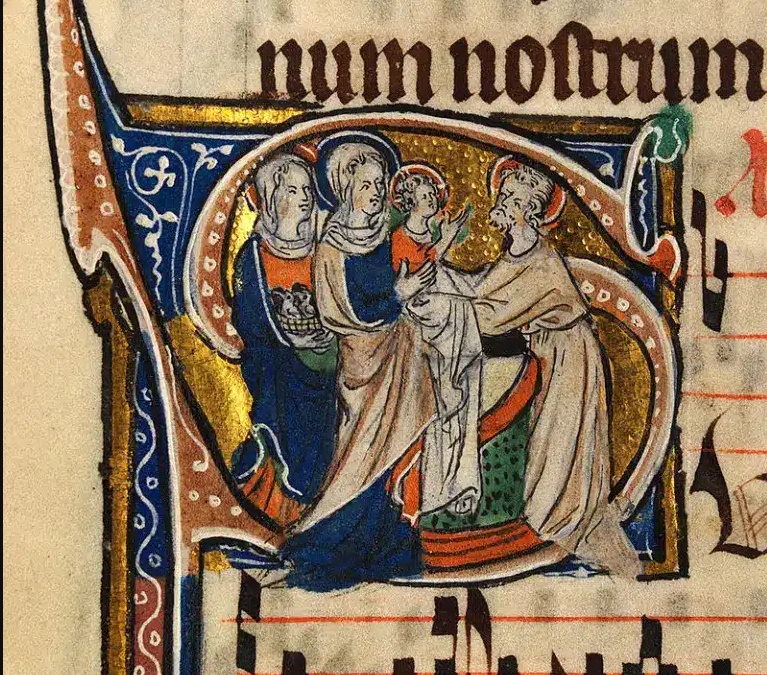 num nostrum